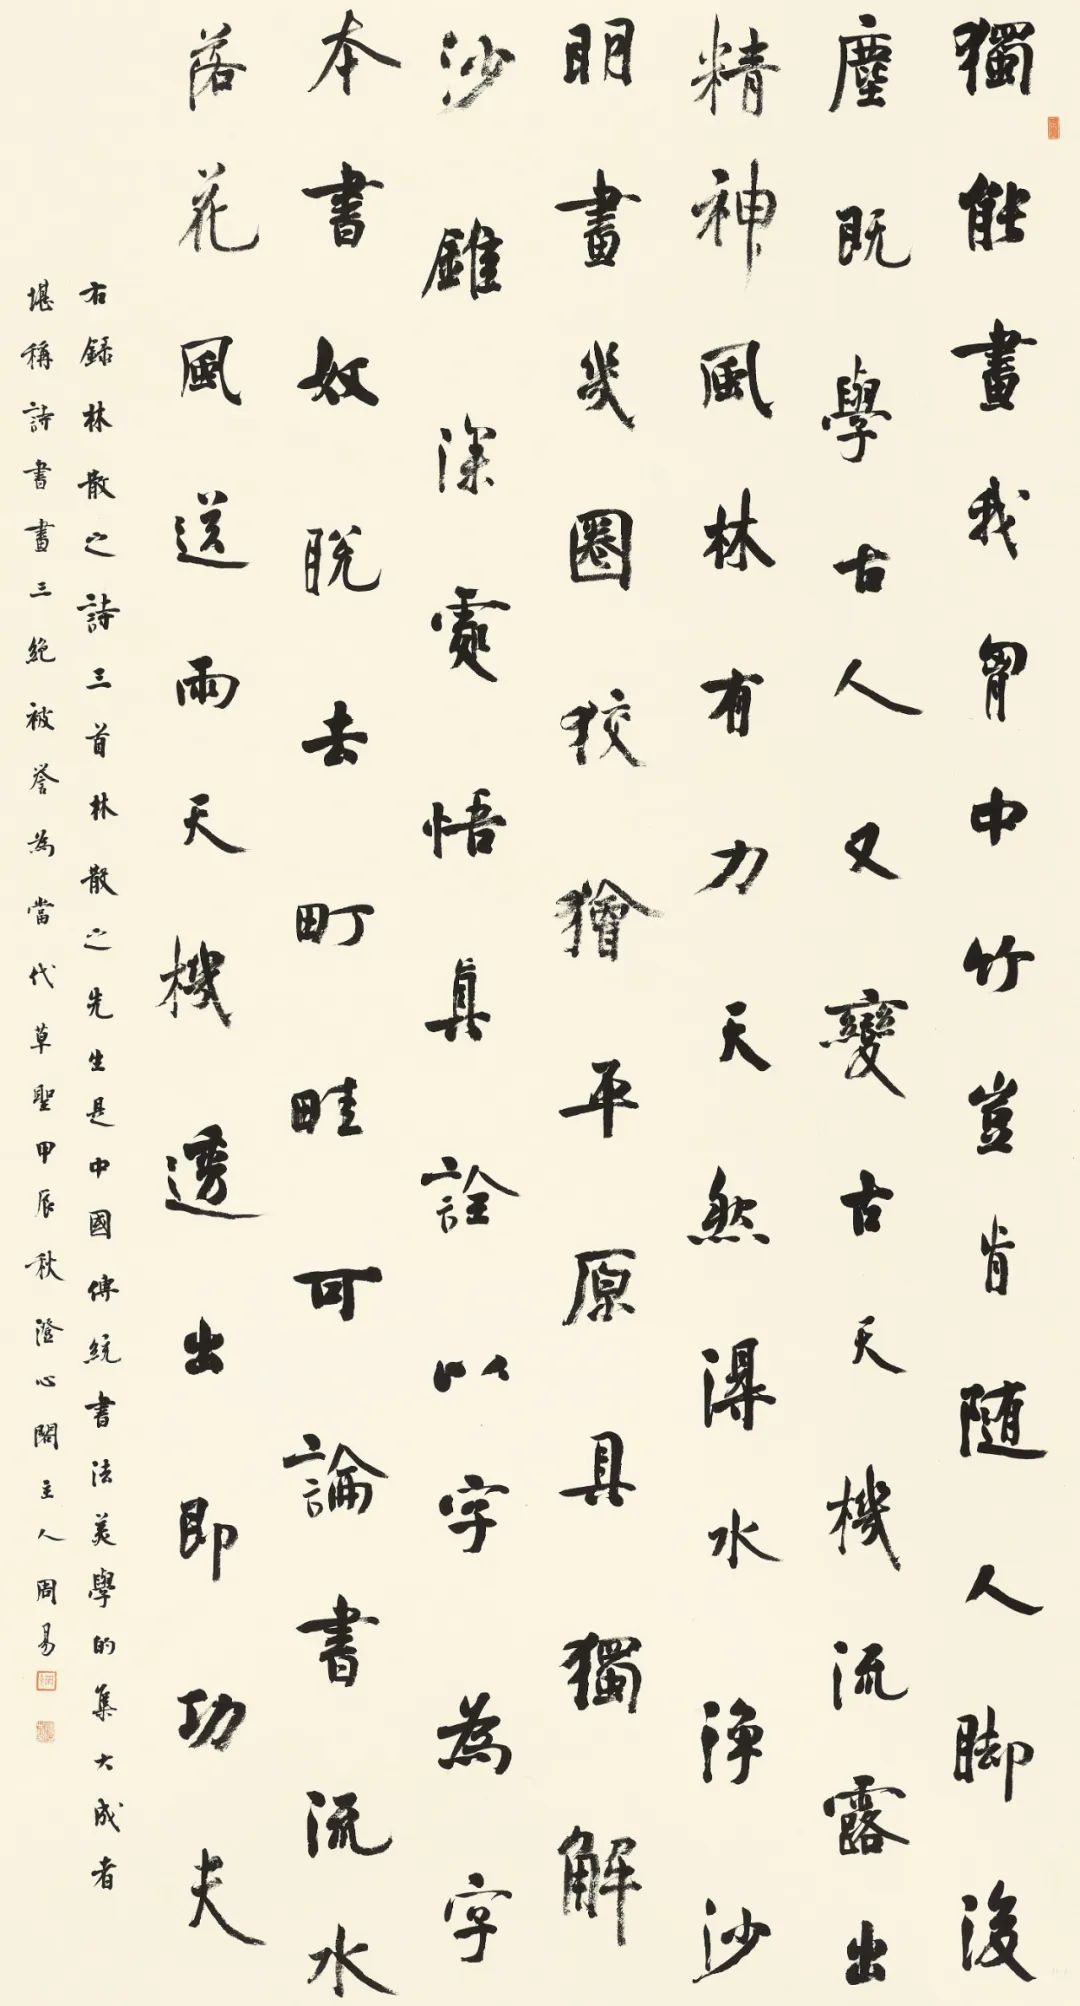 獨能畫我胷中竹豈肯随人脚後
塵既學古人又變古天機流露出
精神風林有力天然得水浄沙
明畫幾圈狡獪平原具獨解
沙錐深處悟真詮以字為字
本書奴脫去町畦可論書流水
落花風送雨天機透出即功夫
右録林散之詩三首林散之先生是中國傳統書法美學的集大成者
堪稱詩書畫三絶被誉為當代草聖甲辰秋澄心閣主人周易